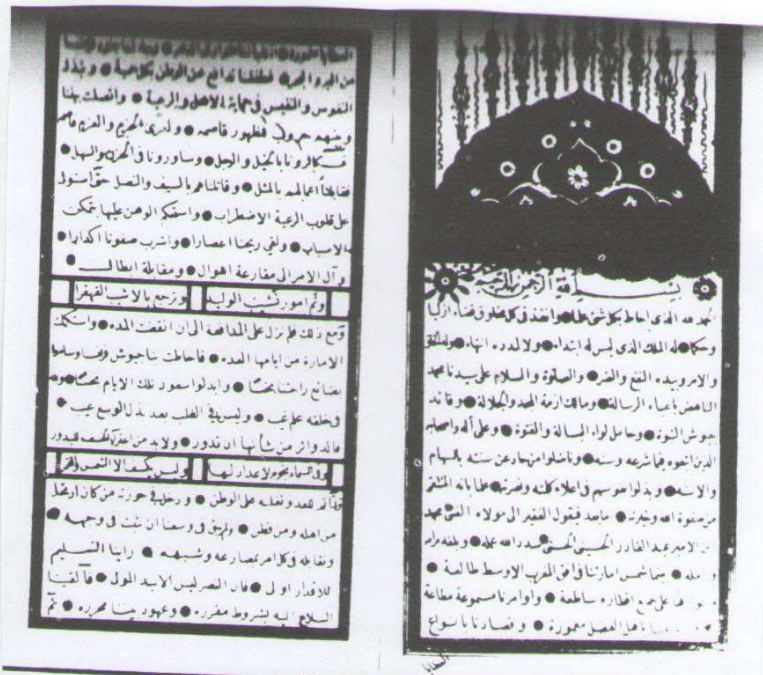 بسم الله الرحمن الرحيم
الحمد لله الذي احاط بكل شئ علما وانفذ في كل مخلوق قضاء ازليا
وحكما له الملك الذي ليس له ابتداء ولا لمدده انتهاء وله الخلق
والامر وبيده النفع والضر والصلوة والسلام على سيدنا محمد
الناهض باعباء الرسالة ومالك ازمة المجد والجلالة وقائد
جيوش النبوة وحامل لواء البسالة والفتوة وعلى آله واصحابه
الذين اتبعوه فيما شرعه وسنه وناضلوا من حاد عن سننه بالسهام
والاسنه وبذلوا نفوسهم في اعلاء كلمته ونصرته علما بانه المنتقى
من صفوة الله وخيرته ما بعد فيقول الفقير الى مولاه الغني محمد
بن الامير عبد القادر الحسيني الحسني سدد الله عمله وبلغه مرامه
و مله بينما شمس امارتنا في افق المغرب الاوسط طالعة
على جميع اقطاره ساطعة واوامرنا مسموعة مطاعة
باهل الفضل معمورة وقصارنا بانواع
العطايا
من البر والبحر فطفقنا ندافع عن الوطن بكل حمية ونبذل
النفوس والنفيس في حماية الاهل والرعية واتصلت بيننا
وبينهم حروب للظهور قاصمه ولعرى الحزم والعزم فاصمه
فكاثرونا بالخيل والرجل وساورونا في الحزن والسهل
فقابلنا اعمالهم بالمثل وقاتلناهم بالسيف والنصل حتى استولى
على قلوب الرعية الاضطراب واستحكم الوهن عليها بتمكن
الاسباب ولقي ريحنا اعصارا واشرب صفونا اكدارا
وآل الامر الى مقارعة اهوال ومقابلة ابطال
وثم امور تشيب الوليد وترجع بالاشيب القهقرا
ومع ذلك فلم نزل على المدافعة الى ان انقضت المده واستكملت
الامارة من ايامها العده فاحاطت بنا جيوش فرنسا وساموا
بضائع راحتنا بخسا وابدلوا سعود تلك الايام نحسا ولله
في خلقه علم غيب وليس في الغلب بعد بذل الوسع عيب
فالدوائر من شأنها ان تدور ولا بد من اعتراء الكسف للبدور
وفي السماء نجوم لا عداد لها وليس يكسف الا الشمس والقمر
ولما تم للعدو تغلبه على الوطن ودخل في حوزته من كان ارتحل
من اهله ومن قطن ولم يبق في وسعنا ان نثبت في وجهه
ونقابله في كل امر بمضارعه وشبهه راينا التسليم
للاقدار اولى فان النصر ليس الا بيد المولى فالقينا
السلاح اليه بشروط مقرره وعهود بيننا محرره ثم